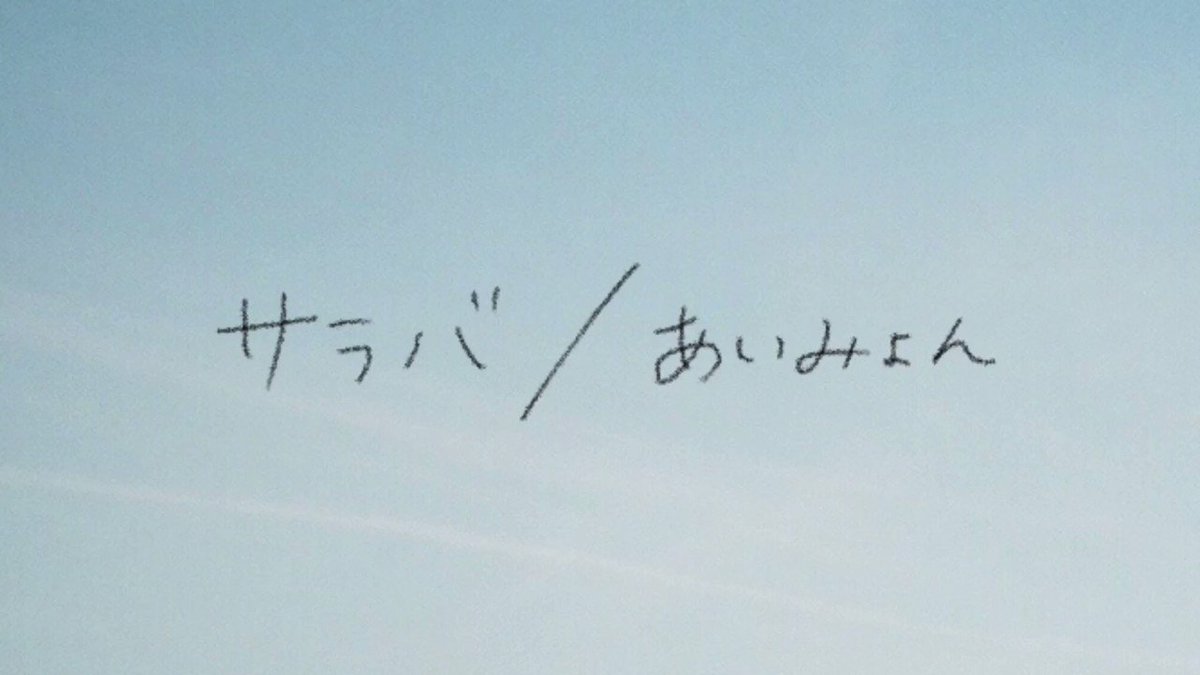 サラバ/あいみょん